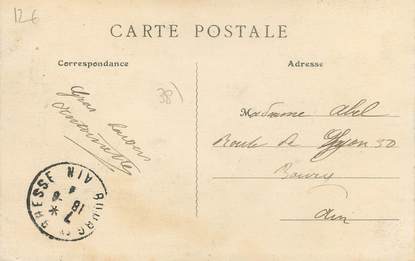 12€
CARTE POSTALE
Correspondance
Adresse
38
Gros baisers
Antoinette
Madame Abel
Route de Lyon 50
Bourg
Ain
BOURG BRESSE AIN
18